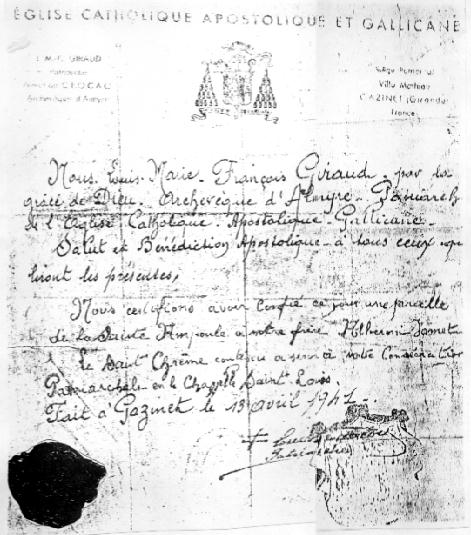 ÉGLISE CATHOLIQUE APOSTOLIQUE ET GALLICANE
GIRAUD
Villa
GAZINET (Gironde)
France
Nous Louis-Marie-François Giraud par la
grâce de Dieu. Archevêque d'Almyre - Patriarche
de l'Eglise Catholique. Apostolique. Gallicane.
Salut et Bénédiction Apostolique à tous ceux qui
liront les présentes,
Nous certifions avoir confié ce jour une parcelle
de la Sainte Ampoule a notre frère
le Saint Chrême contenu a servi à notre Consécration
Patriarchale en la Chapelle Saint Louis.
Fait à Gazinet le 13 avril 1941.